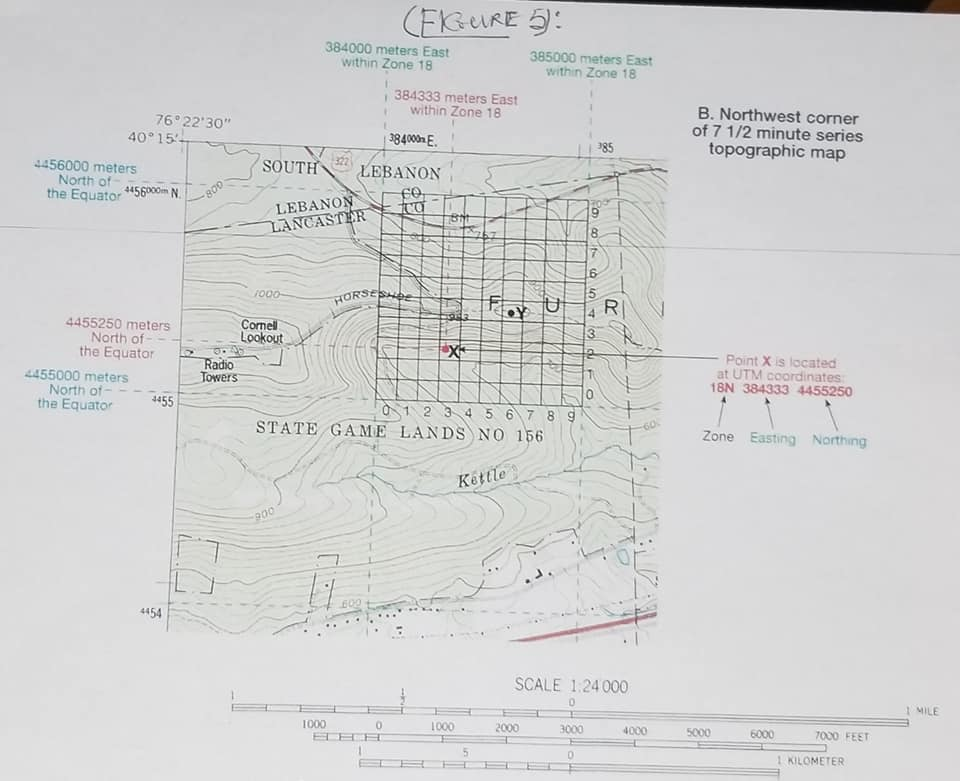 (FIGURE 5):
384000 meters East
within Zone 18
385000 meters East
within Zone 18
384333 meters East
within Zone 18
B. Northwest corner
of 7 1/2 minute series
topographic map
76°22'30"
40°15'
384000m E.
385
4456000 meters
North of
the Equator
4456000m N.
800
SOUTH
322
LEBANON
CO
CO
LEBANON
LANCASTER
BM
767
9
8
7
6
5
4
3
2
1
0
1000
HORSESHOE
983
F
U
R
Y
X
4455250 meters
North of
the Equator
Cornell
Lookout
Radio
Towers
Point X is located
at UTM coordinates:
18N 384333 4455250
Zone
Easting
Northing
4455000 meters
North of
the Equator
4455
0 1 2 3 4 5 6 7 8 9
STATE GAME LANDS NO 156
60
Kettle
900
600
4454
SCALE 1:24 000
1
1/2
0
1 MILE
1000
0
1000
2000
3000
4000
5000
6000
7000 FEET
1
5
0
1 KILOMETER